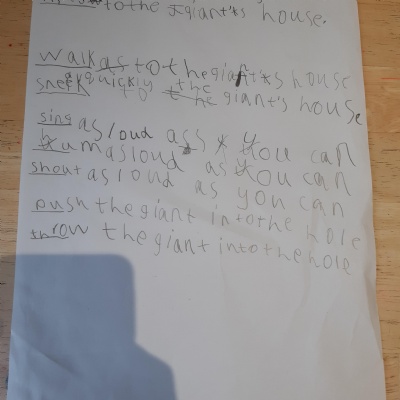 to the giant's house.
walk as to the giant's house
sneak quickly to the giant's house
sing as loud as you can
hum as loud as you can
shout as loud as you can
push the giant into the hole
throw the giant into the hole